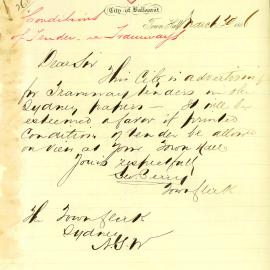 Conditions
of Tender re Tramways
City of Ballaarat
Town Hall March 20 1886
Dear Sir
This City is advertising
for Tramway tenders in the
Sydney papers — It will be
esteemed a favor if printed
Condition of tender be allowed
on view at your Town Hall
Yours respectfully
Geo. Perry
Town Clerk
The Town Clerk
Sydney
N.S.W